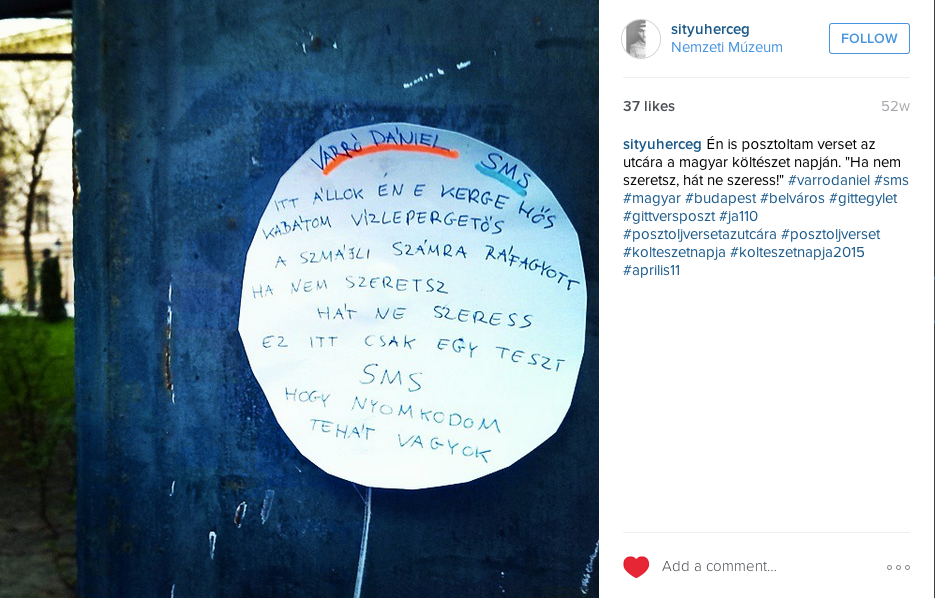 VARRÓ DÁNIEL SMS
ITT ÁLLOK ÉN E KERGE HŐS
KABÁTOM VÍZLEPERGETŐS
A SZMÁJLI SZÁMRA RÁFAGYOTT
HA NEM SZERETSZ
HÁT NE SZERESS
EZ ITT CSAK EGY TESZT
SMS
HOGY NYOMKODOM
TEHÁT VAGYOK
sityuherceg
Nemzeti Múzeum
FOLLOW
37 likes 52w
sityuherceg Én is posztoltam verset az
utcára a magyar költészet napján. "Ha nem
szeretsz, hát ne szeress!" #varrodaniel #sms
#magyar #budapest #belváros #gittegylet
#gittversposzt #ja110
#posztoljversetazutcára #posztoljverset
#kolteszetnapja #kolteszetnapja2015
#aprilis11
Add a comment...